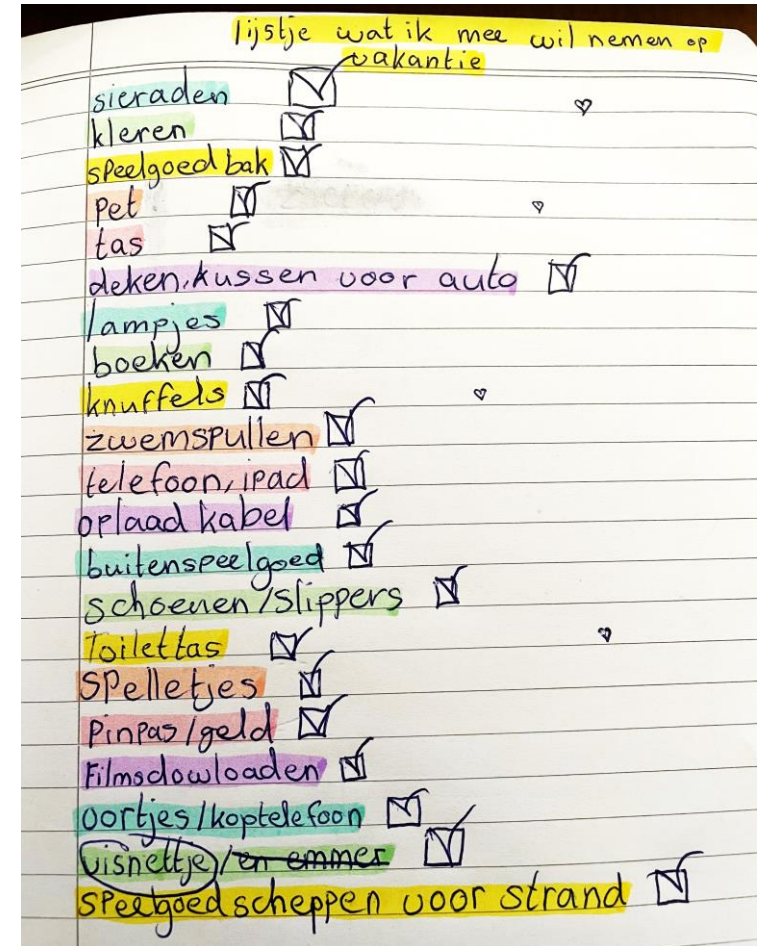 lijstje wat ik mee wil nemen op
vakantie
sieraden
kleren
speelgoed bak
Pet
tas
deken, kussen voor auto
lampjes
boeken
knuffels
zwemspullen
telefoon, ipad
oplaad kabel
buitenspeelgoed
schoenen/slippers
Toilettas
Spelletjes
Pinpas/geld
Filmsdowloaden
oortjes/koptelefoon
visnettje/en emmer
speelgoed scheppen voor strand